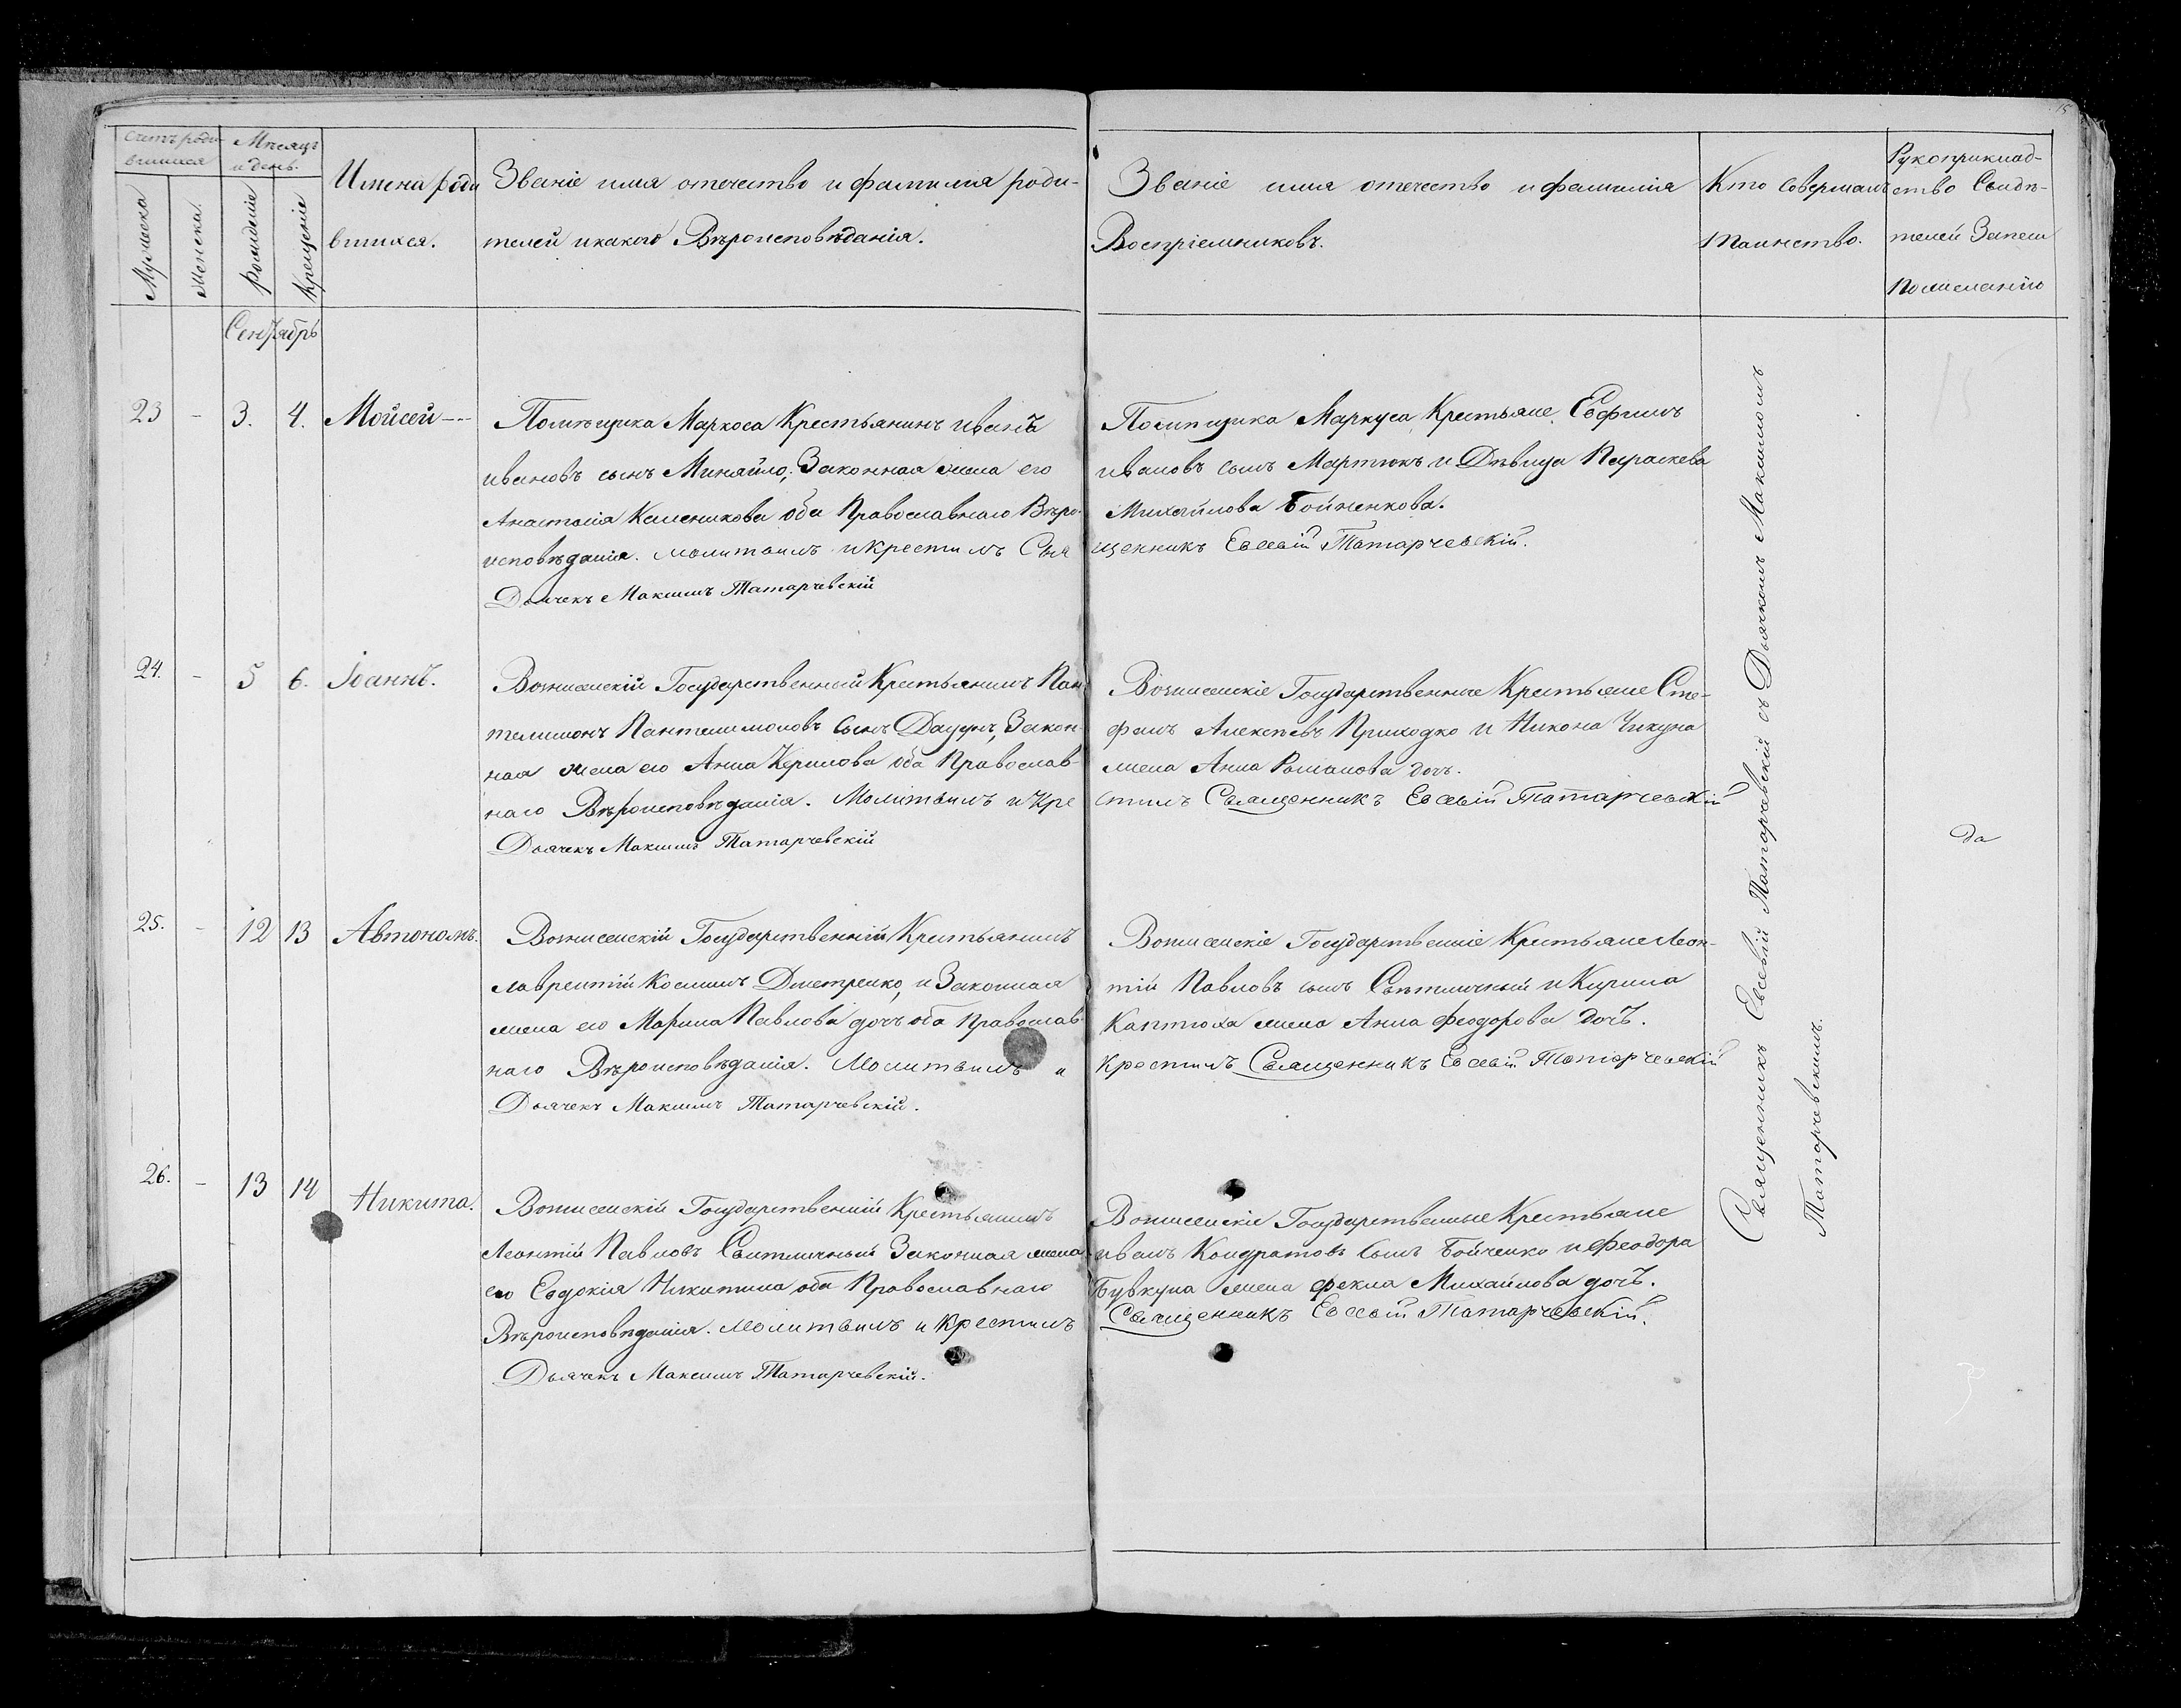 15
Счетъ роди-
вшихся
Мѣсяцъ
и день.
Мужеска
Женска.
рожденіе
крещеніе
Имена роди
вшихся.
Званіе имя отечество и фамилія роди-
телей и какого Вѣроисповѣданія.
Званіе имя отечество и фамилія
Воспріемниковъ.
Кто совершалъ
таинство.
Рукоприклад-
ство Свидѣ-
телей Записи
По желанію
Сентябрь
23 - 3. 4. Мойсей---
Помѣщика Маркоса Крестьянинъ иванъ
ивановъ сынъ Михайло, Законная жена его
Анастасія Каленикова оба Православнаго Вѣро-
исповѣданія. молитвилъ и крестилъ Свя
Дьячекъ Максимъ Татарчевскій
Помѣщика Маркуса Крестьяне Евфимъ
ивановъ сынъ Мартюкъ и Дѣвица Параскева
Михайлова Бойченкова.
щенникъ Евсевій Татарчевскій.
24. - 5 6. Іоаннъ.
Вознесенскій Государственный Крестьянинъ Пан-
телимонъ Пантелимоновъ сынъ Дацунъ, Закон-
ная жена его Анна Керилова оба Православ-
наго Вѣроисповѣданія. Молитвилъ и Кре
Дьячекъ Максимъ Татарчевскій
Вознесенскіе Государственные Крестьяне Сте-
фанъ Алексѣевъ Приходко и Никона Чикуна
жена Анна Романова дочь.
стилъ Священникъ Евсевій Татарчевскій
25. - 12 13 Автономъ.
Вознесенскій Государственній Крестьянинъ
лаврентій Косминъ Дметренко, и Законная
жена его Марина Павлова дочъ оба Православ-
наго Вѣроисповѣданія. Молитвилъ и
Дьячекъ Максимъ Татарчевскій.
Вознесенскіе Государственніе Крестьяне Леон-
тій Павловъ сынъ Свѣтличный и Кирила
Каптюха жена Анна феодорова Дочъ.
крестилъ Священникъ Евсевій Татарчевскій
26. - 13 14 Никита.
Вознесенскій Государственній Крестьянинъ
Леонтій Павловъ Свитличный Законная жена
его Евдокія Никитина оба Православнаго
Вѣроисповѣданія. молитвилъ и Крестилъ
Дьячекъ Максимъ Татарчевскій.
Вознесенскіе Государственные Крестьяне
иванъ Кондратовъ Сынъ Бойченко и Феодора
жена фекла Михайлова дочъ.
Священникъ Евсевій Татарчевскій.
Священникъ Евсевій Татарчевскій съ Дьячкомъ Максимомъ
Татарчевскимъ.
15
да